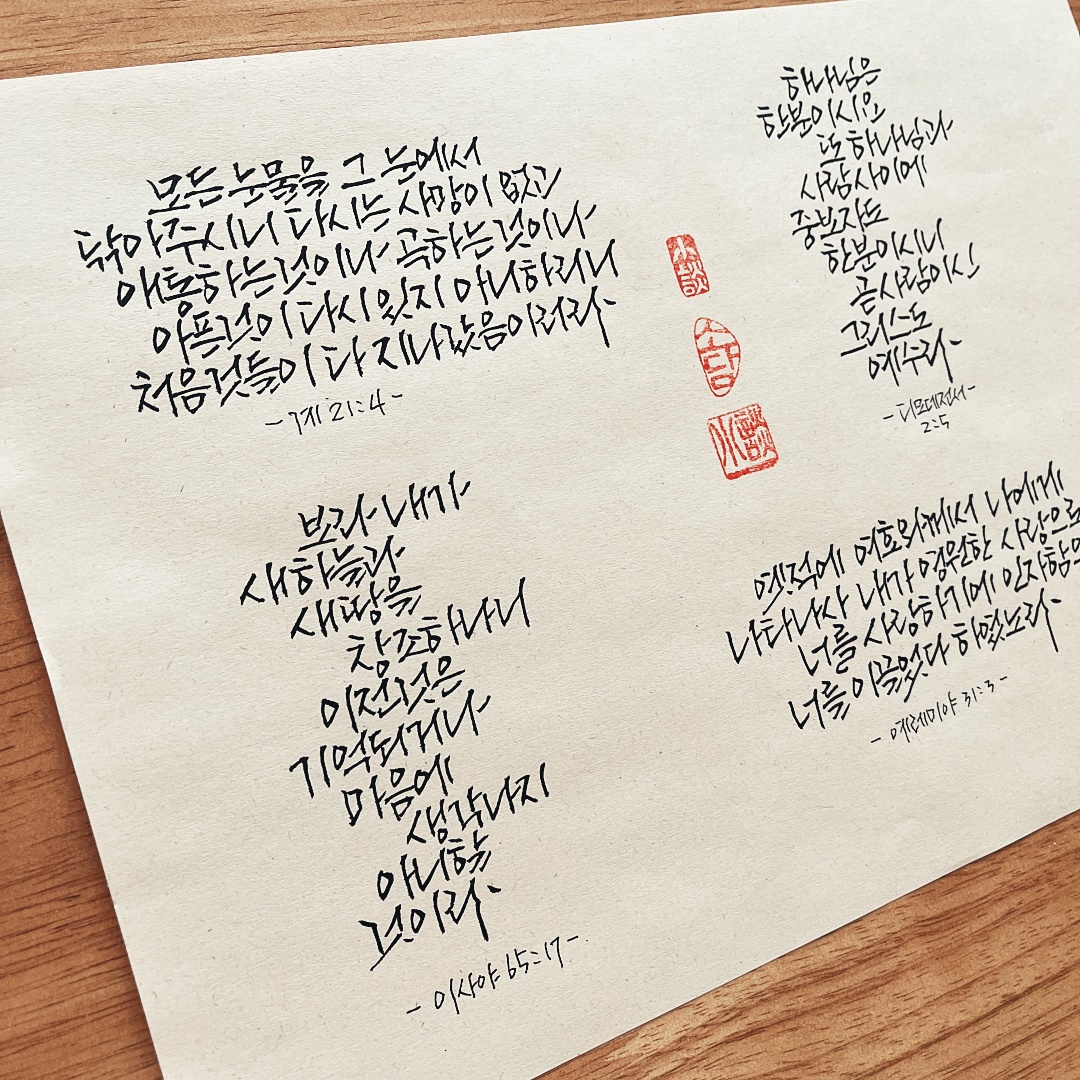 모든 눈물을 그 눈에서
닦아 주시니 다시는 사망이 없고
애통하는 것이나 곡하는 것이나
아픈 것이 다시 있지 아니하리니
처음 것들이 다 지나갔음이러라
- 계 21:4 -
하나님은
한 분이시요
또 하나님과
사람 사이에
중보자도
한 분이시니
곧 사람이신
그리스도
예수라
- 디모데전서 -
2:5
小談
소담
小談
보라 내가
새 하늘과
새 땅을
창조하나니
이전 것은
기억되거나
마음에
생각나지
아니할
것이라
- 이사야 65:17 -
옛적에 여호와께서 나에게
나타나사 내가 영원한 사랑으로
너를 사랑하기에 인자함으
너를 이끌었다 하였노라
- 예레미야 31:3 -